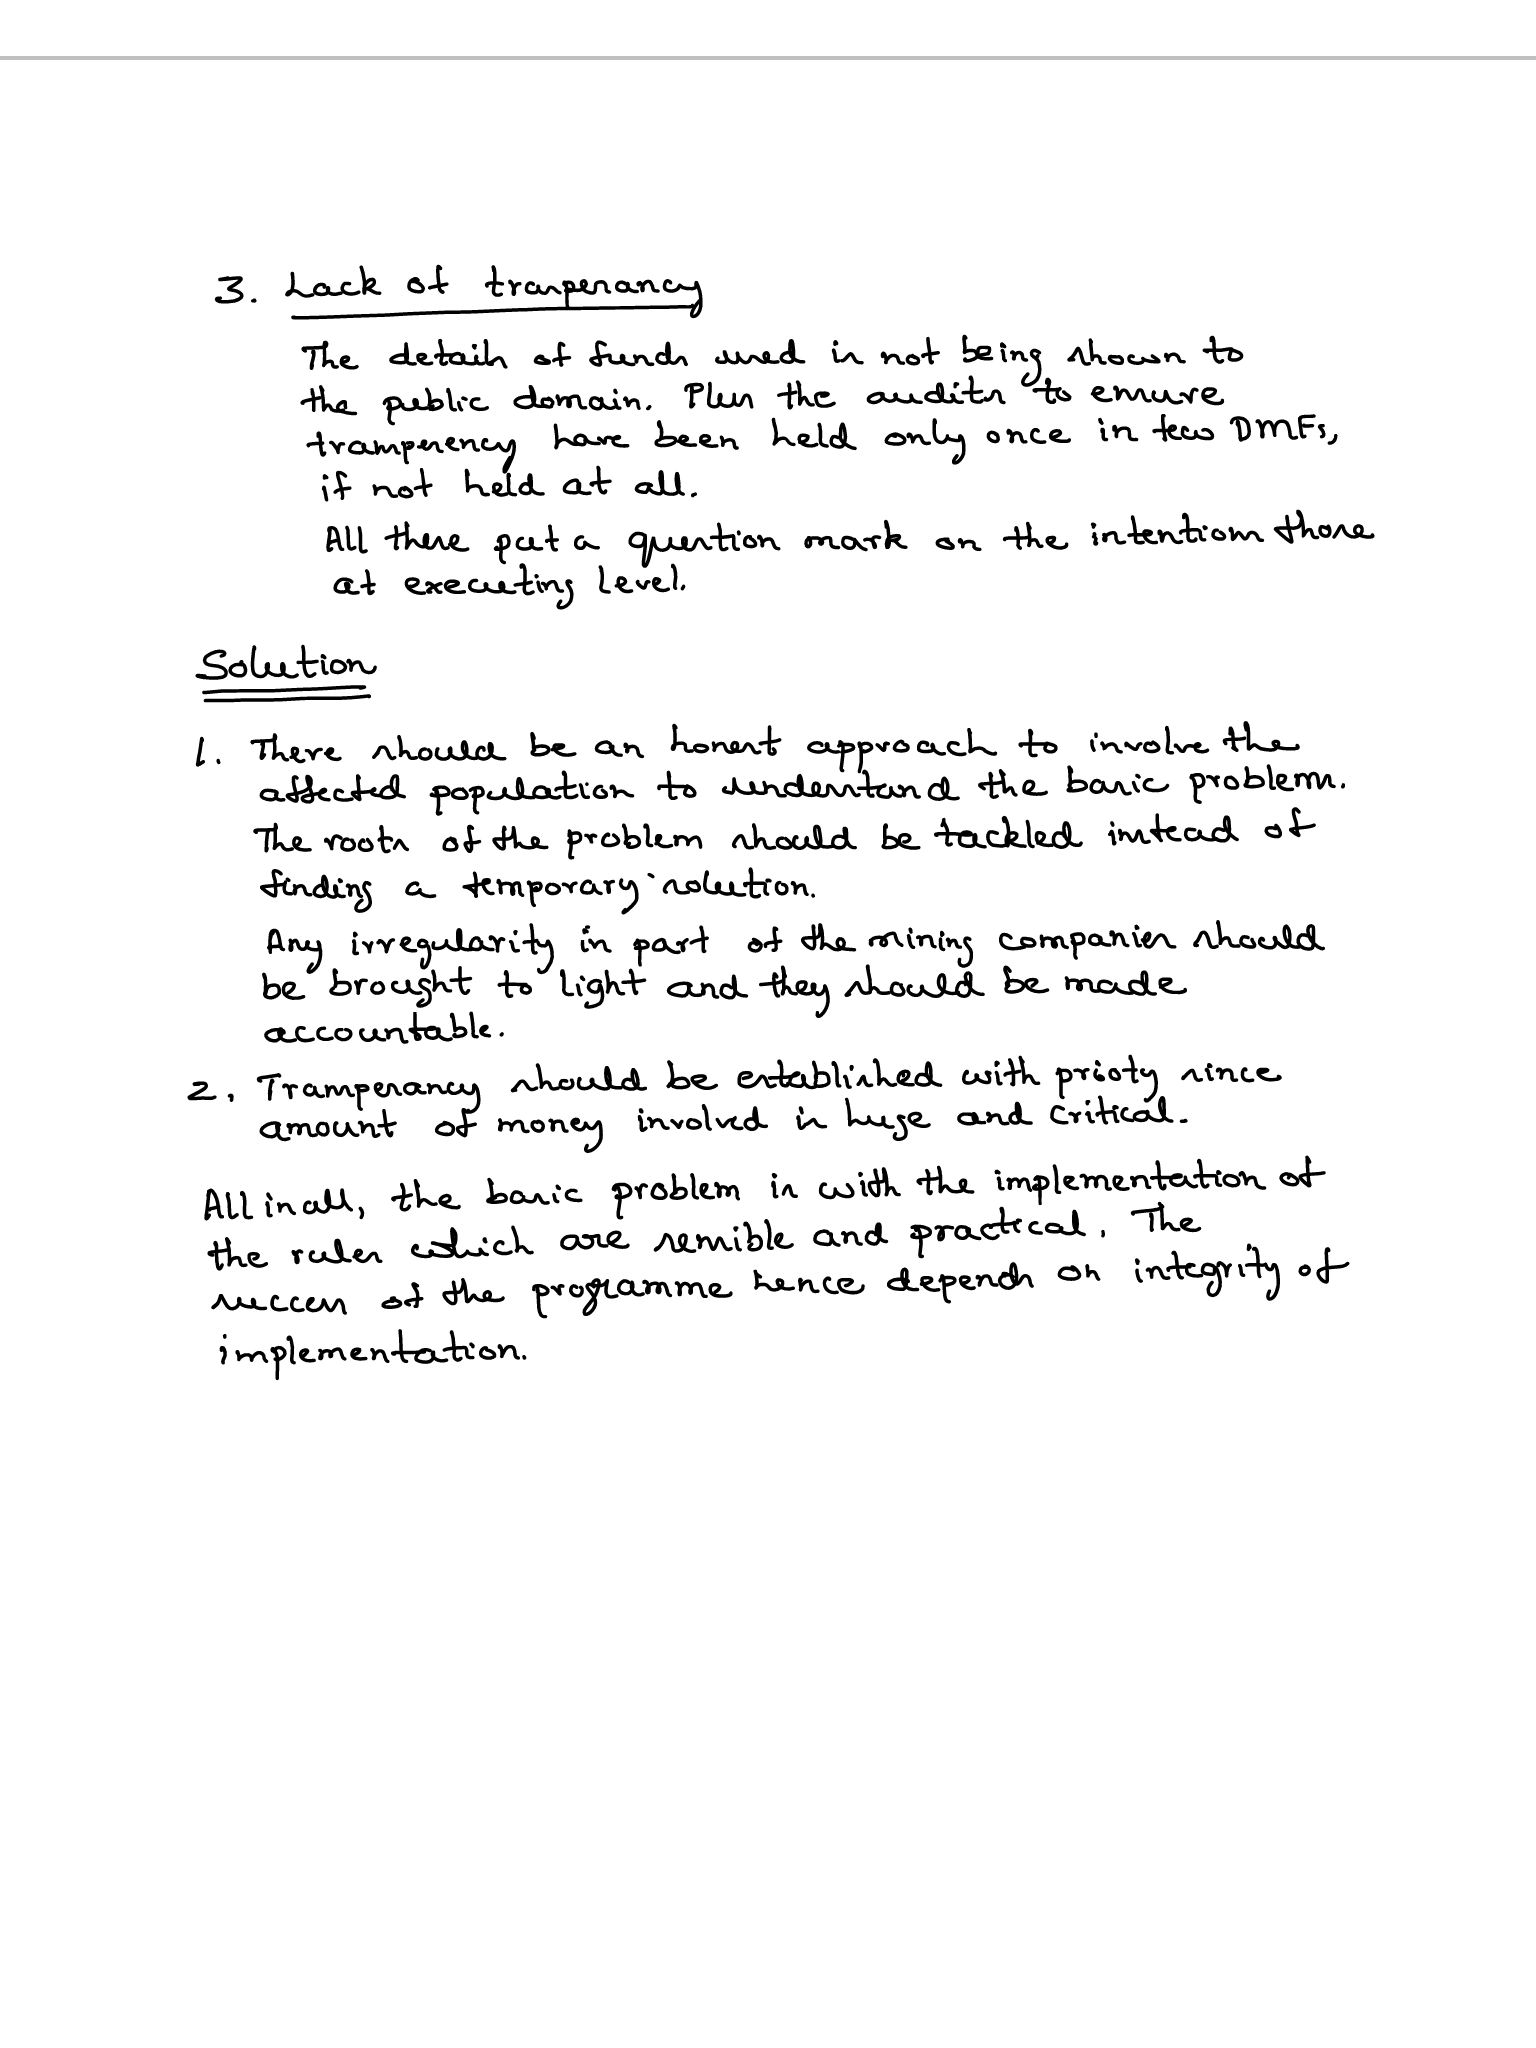 3. Lack of transperancy
The details of funds used is not being shown to
the public domain. Plus the audits to ensure
transperency have been held only once in few DMFs,
if not held at all.
All these put a question mark on the intentions those
at executing level.
Solution
1. There should be an honest approach to involve the
affected population to understand the basic problems.
The roots of the problem should be tackled instead of
finding a temporary solution.
Any irregularity in part of the mining companies should
be brought to light and they should be made
accountable.
2. Transperancy should be established with prioty since
amount of money involved is huge and critical.
All in all, the basic problem is with the implementation of
the rules which are sensible and practical. The
success of the programme hence depends on integrity of
implementation.